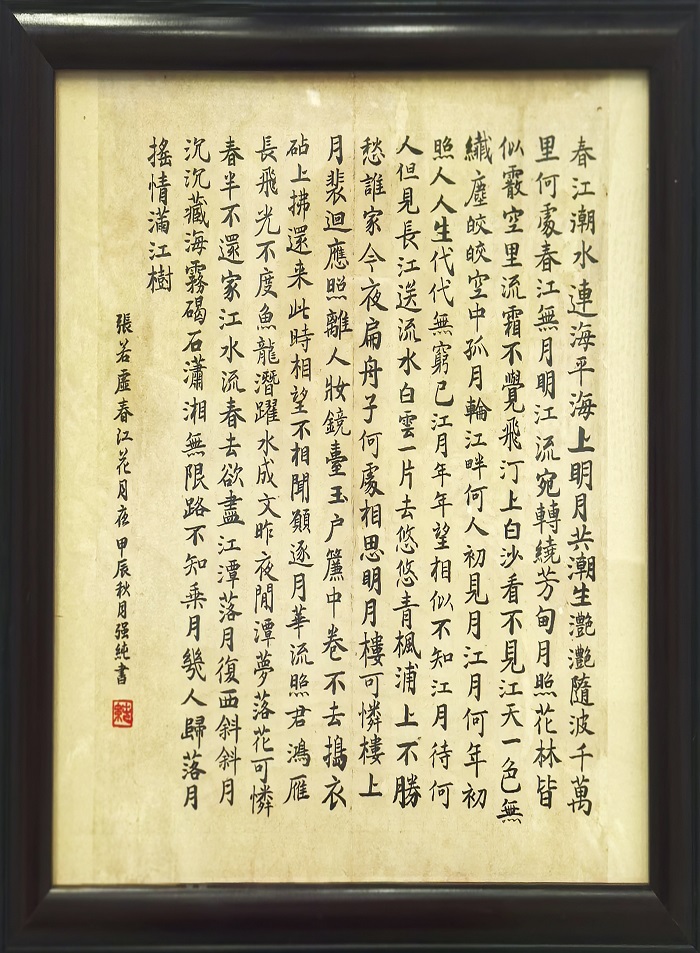 春江潮水連海平海上明月共潮生灧灧隨波千萬
里何處春江無月明江流宛轉繞芳甸月照花林皆
似霰空里流霜不覺飛汀上白沙看不見江天一色無
纖塵皎皎空中孤月輪江畔何人初見月江月何年初
照人人生代代無窮已江月年年望相似不知江月待何
人但見長江送流水白雲一片去悠悠青楓浦上不勝
愁誰家今夜扁舟子何處相思明月樓可憐樓上
月裴迴應照離人妝鏡臺玉户簾中卷不去搗衣
砧上拂還来此時相望不相聞願逐月華流照君鴻雁
長飛光不度魚龍潛躍水成文昨夜閒潭夢落花可憐
春半不還家江水流春去欲盡江潭落月復西斜斜月
沉沉藏海霧碣石瀟湘無限路不知乘月幾人歸落月
搖情滿江樹
張若虛春江花月夜甲辰秋月强純書